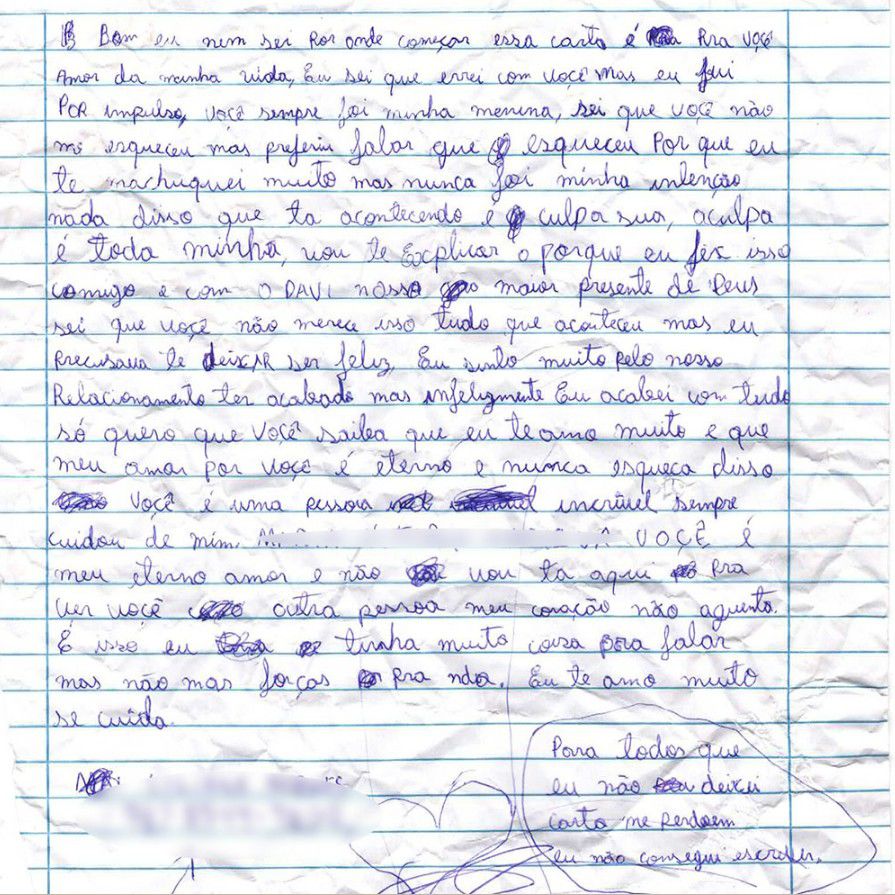 Bom eu nem sei por onde começar essa carta é pra você
Amor da minha vida, Eu sei que errei com você mas eu fui
POR impulso, você sempre foi minha menina, sei que você não
me esqueceu mas preferiu falar que esqueceu Por que eu
te machuquei muito mas nunca foi minha intenção
nada disso que ta acontecendo e culpa sua, aculpa
é toda minha, vou te Explicar o porque eu fix isso
comigo e com o DAVI nosso maior presente de Deus
sei que você não merece isso tudo que aconteceu mas eu
precisava te deixAR ser feliz, Eu sinto muito pelo nosso
Relacionamento ter acabado mas infelizmente Eu acabei com tudo
só quero que você saiba que eu te amo muito e que
meu amor por você é eterno e nunca esqueca disso
você é uma pessoa incrivel sempre
cuidou de mim. VOCÊ é
meu eterno amor e não vou ta aqui Pra
ver você outra pessoa meu coração não aguenta.
É isso eu tinha muito coisa para falar
mas não mas forças Pra nda. Eu te amo muito
se cuida.
Para todos que
eu não deixei
carta me perdoem
eu não consegui escrever.